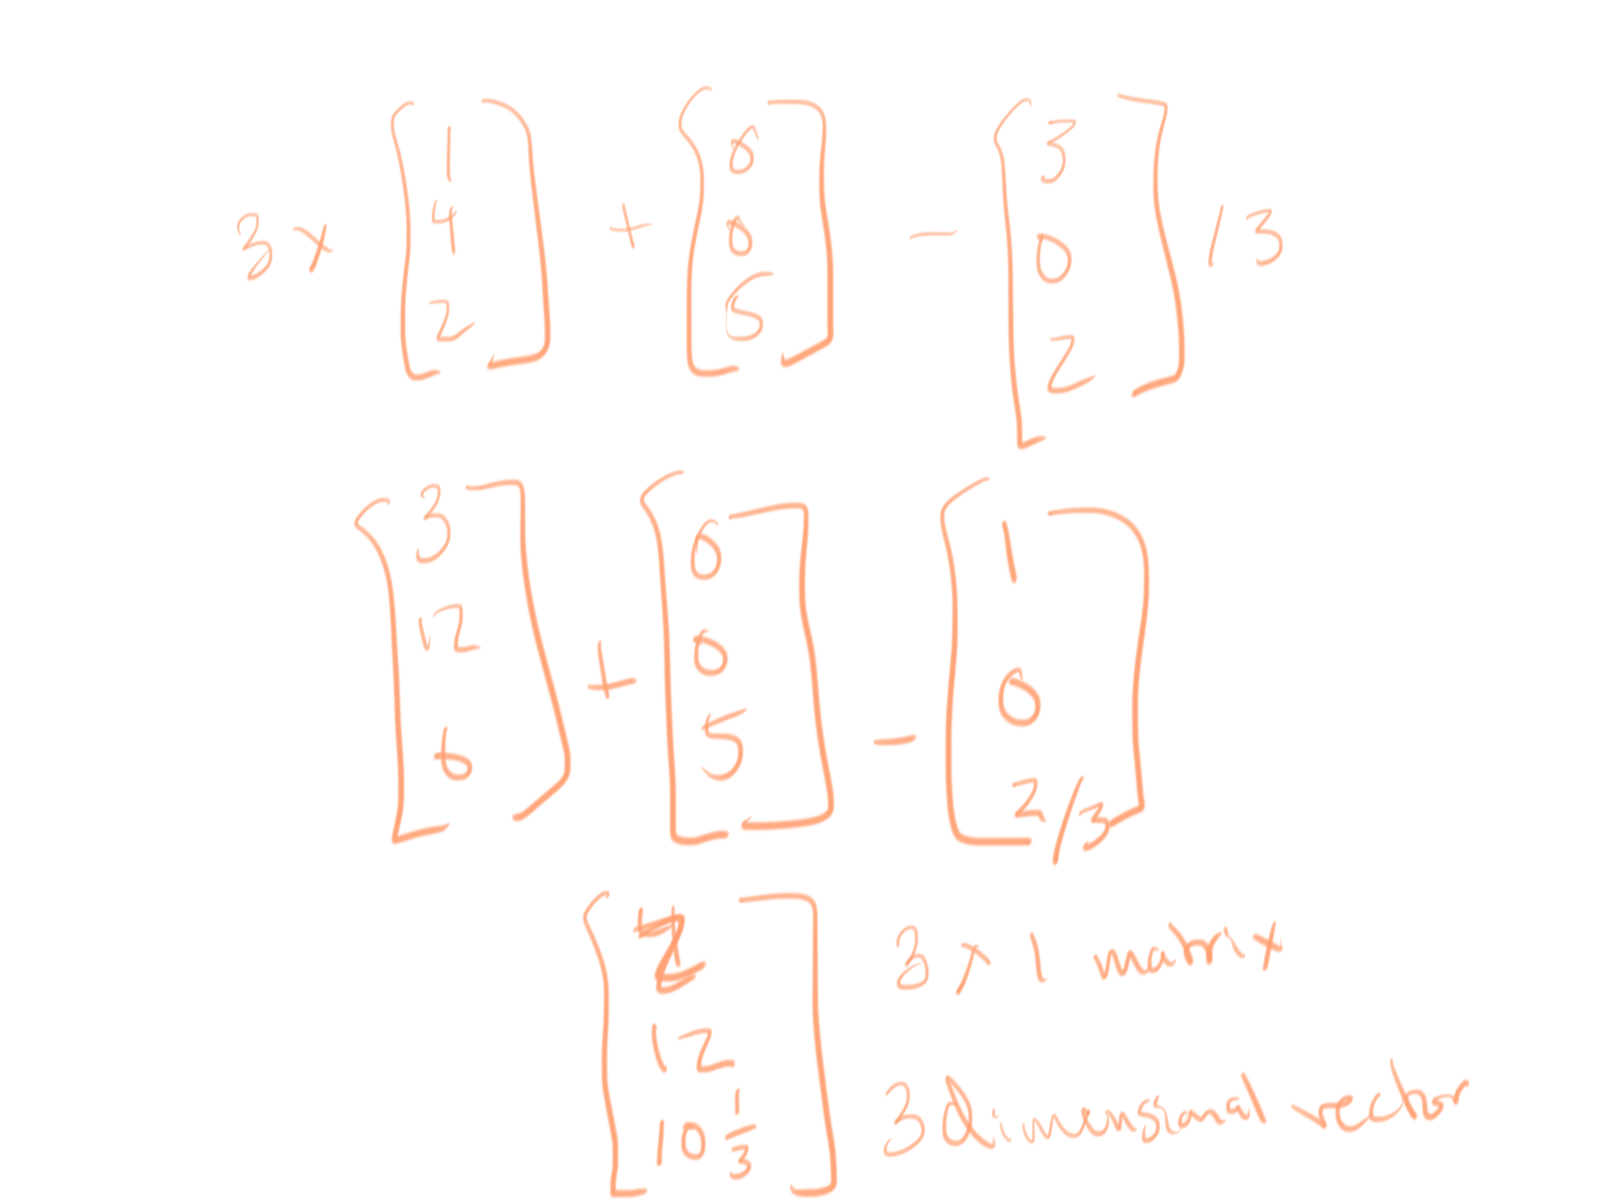 3 × [1 4 2] + [0 0 5] - [3 0 2] / 3
[3 12 6] + [0 0 5] - [1 0 2/3]
[2 12 10 1/3] 3 × 1 matrix
3 dimensional vector